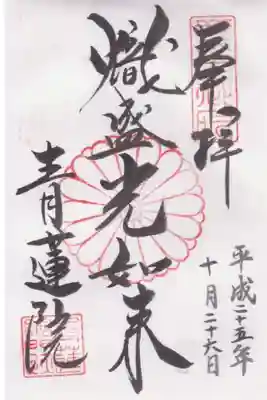 奉拝
熾盛光如来
青蓮院
平成二十五年
十月二十六日